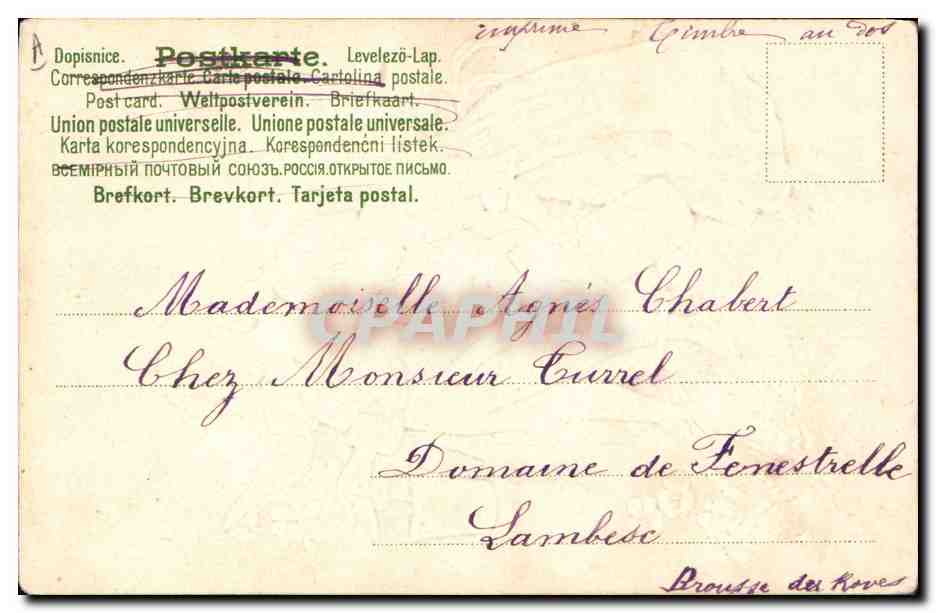 A
imprimé Timbre au dos
Dopisnice. Postkarte. Levelező-Lap.
Correspondenzkarte. Carte postale. Cartolina postale.
Post card. Weltpostverein. Briefkaart.
Union postale universelle. Unione postale universale.
Karta korespondencyjna. Korespondenčni listek.
ВСЕМІРНЫЙ ПОЧТОВЫЙ СОЮЗЪ. РОССІЯ. ОТКРЫТОЕ ПИСЬМО.
Brefkort. Brevkort. Tarjeta postal.
Mademoiselle Agnès Chabert
CPAPHIL
Chez Monsieur Turrel
Domaine de Fenestrelle
Lambesc
Brousse des Roves